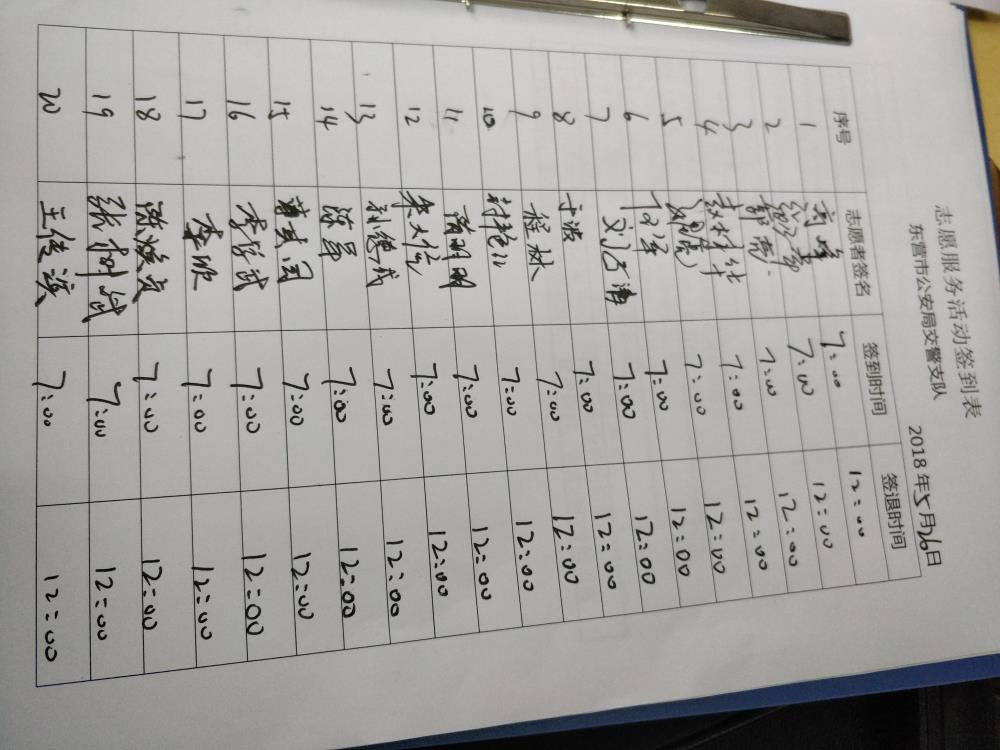 志愿服务活动签到表
东营市公安局交警支队 2018年5月26日
序号 志愿者签名 签到时间 签退时间
1 高峰 7:00 12:00
2 7:00 12:00
3 郭亮 7:00 12:00
4 赵村华 7:00 12:00
5 7:00 12:00
6 7:00 12:00
7 7:00 12:00
8 于波 7:00 12:00
9 程林 7:00 12:00
10 7:00 12:00
11 蒋明明 7:00 12:00
12 7:00 12:00
13 刘德成 7:00 12:00
14 陈昇 7:00 12:00
15 7:00 12:00
16 7:00 12:00
17 李欣 7:00 12:00
18 7:00 12:00
19 张树斌 7:00 12:00
20 王传谈 7:00 12:00